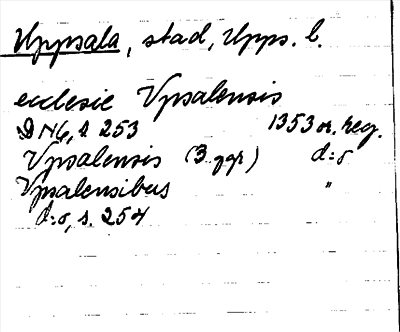 Uppsala, stad, Upps. l.
ecclesie Vpsalensis
DN6, s 253 1353 or. reg.
Vpsalensis (3 ggr) d:o
Vpsalensibus "
d:o, s. 254